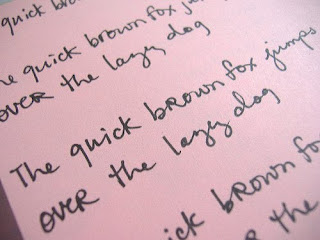 quick bro
he quick brown fox jum
over the lazy dog
The quick brown fox jumps
over the lazy dog
ick brown fo
over the